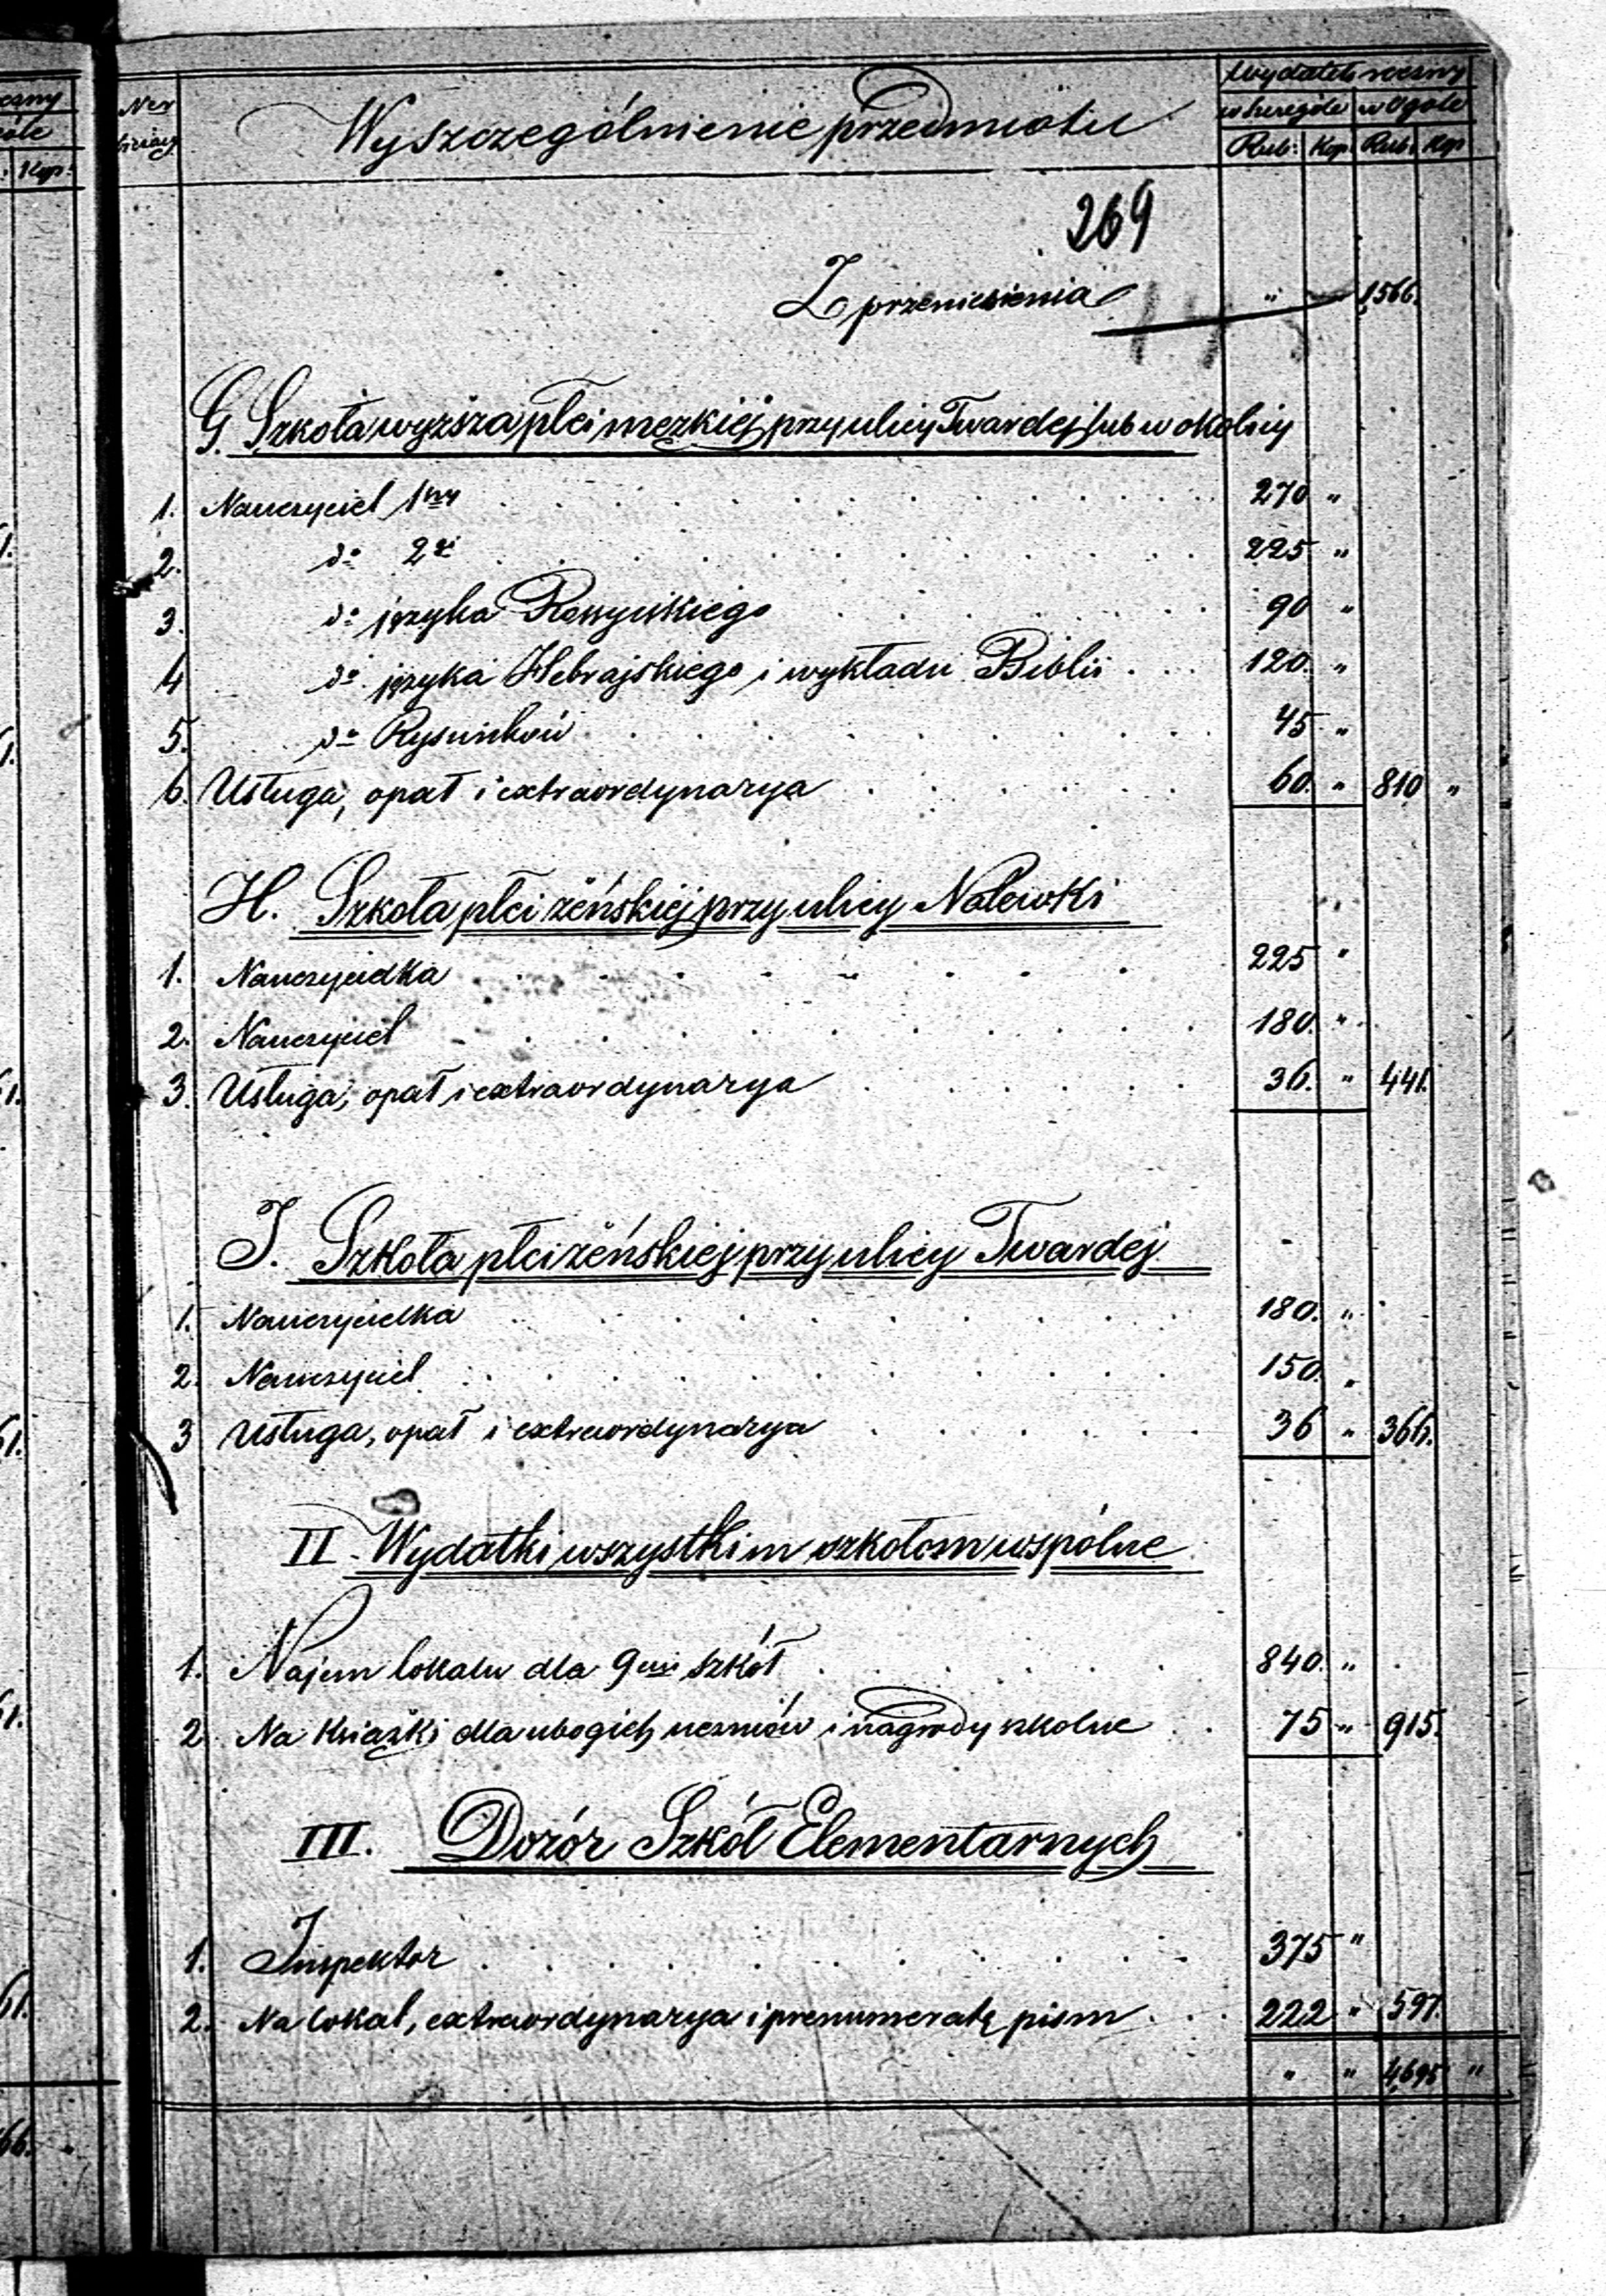 Ner bieżący Wyszczególnienie przedmiotu Wydatek roczny
w szczególe w ogóle
Rub: Kop. Rub: Kop
269
Z przeniesienia „ 1566.
G. Szkoła wyższa płci męzkiéj przy ulicy Twardej lub w okolicy
1. Nauczyciel 1ny 270 „
2. do 2gi 225 „
3. do języka Rossyiskiego 90 „
4 do języka Hebrajskiego i wykładu Biblii 120. „
5. do Rysunków 45 „
6. Usługa, opał i extraordynarya 60. „ 810 „
H. Szkoła płci żeńskiej przy ulicy Nalewki
1. Nauczycielka 225 „
2. Nauczyciel 180. „
3. Usługa, opał i extraordynarya 36. „ 441.
J. Szkoła płci żeńskiej przy ulicy Twardej
1. Nauczycielka 180. „
2. Nauczyciel 150. „
3 Usługa, opał i extraordynarya 36 „ 366.
II. Wydatki wszystkim szkołom wspólne
1. Najem lokalu dla 9ciu szkół 840. „
2. Na Książki dla ubogich uczniów i nagrody szkolne 75 „ 915.
III. Dozór Szkół Elementarnych
1. Inspektor 375 „
2. Na lokal, extraordynarya i prenumeratę pism 222 „ 597.
„ „ 4,695 „